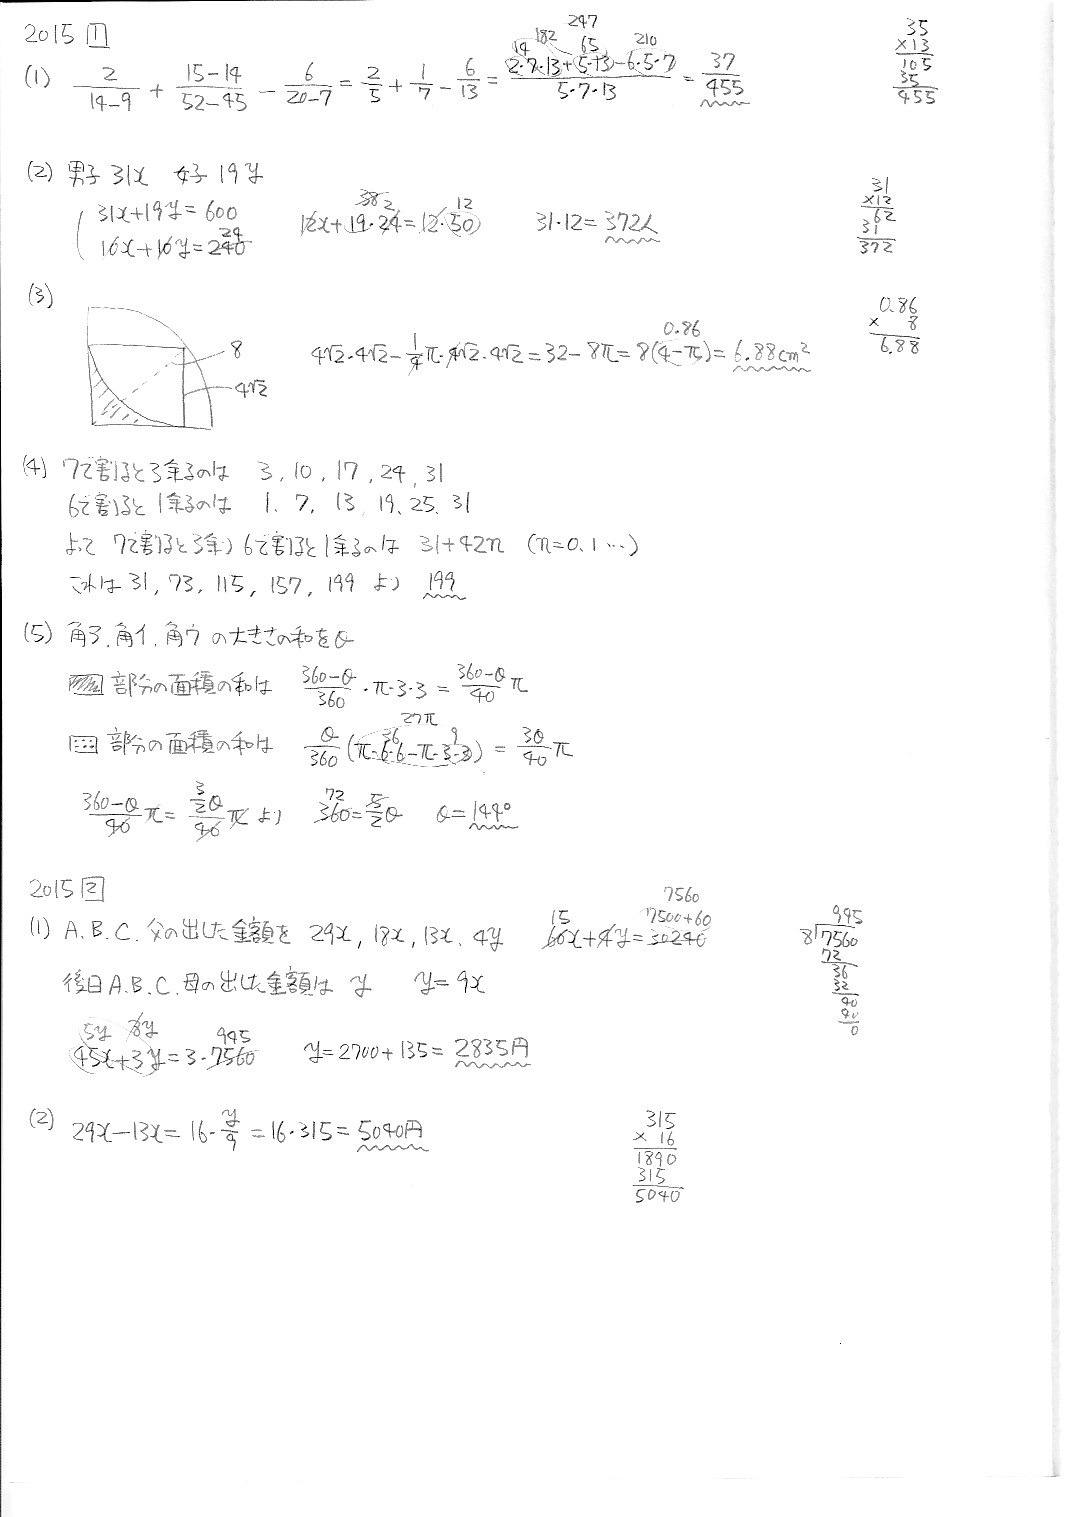 2015 1
(1) 2/(14-9) + (15-14)/(52-45) - 6/(20-7) = 2/5 + 1/7 - 6/13 = (2・7・13+5・13-6・5・7)/(5・7・13) = 37/455
14 182 247 65 210
35
×13
105
35
455
(2) 男子 31x 女子 19y
31x+19y=600
16x+16y=240
24
12x+19・24=12・50
382 12
31・12=372人
31
×12
62
31
372
(3)
8
4√2
4√2・4√2-1/4π・4√2・4√2=32-8π=8(4-π)=6.88cm²
0.86
0.86
× 8
6.88
(4) 7で割ると3余るのは 3, 10, 17, 24, 31
6で割ると1余るのは 1, 7, 13, 19, 25, 31
よって 7で割ると3余り 6で割ると1余るのは 31+42n (n=0,1…)
これは 31, 73, 115, 157, 199 より 199
(5) 角ア, 角イ, 角ウ の大きさの和をθ
部分の面積の和は (360-θ)/360・π・3・3 = (360-θ)/40 π
部分の面積の和は θ/360 (π・6・6-π・3・3) = 3θ/40 π
27π 36 9
(360-θ)/40 π = (3/2θ)/40 π より 360=5/2θ θ=144°
72
2015 2
(1) A.B.C.父の出した金額を 29x, 18x, 13x, 4y 60x+4y=30240
15 7500+60
7560
後日A.B.C.母の出した金額は y y=9x
45x+3y=3・7560 y=2700+135=2835円
5y 8y 945
945
8)7560
72
36
32
40
40
0
(2) 29x-13x=16・y/9=16・315=5040円
315
× 16
1890
315
5040